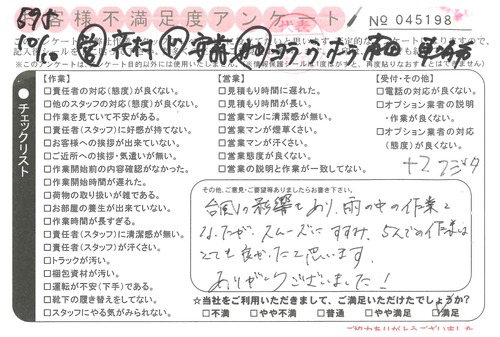 お客様不満足度アンケート
No 045198
チェックリスト
【作業】
□責任者の対応(態度)が良くない。
□他のスタッフの対応(態度)が良くない。
□作業を見ていて不安がある。
□責任者(スタッフ)に好感が持てない。
□お客様への挨拶が出来ていない。
□ご近所への挨拶・気遣いが無い。
□作業開始前の内容確認がなかった。
□作業開始時間が遅れた。
□荷物の取り扱いが雑である。
□お部屋の養生が出来ていない。
□作業時間が長すぎる。
□責任者(スタッフ)に清潔感が無い。
□責任者(スタッフ)が汗くさい。
□トラックが汚い。
□梱包資材が汚い。
□運転が不安(下手)である。
□靴下の履き替えをしてない。
□スタッフにやる気がみられない。
【営業】
□見積もり時間に遅れた。
□見積もり時間が長い。
□営業マンに清潔感が無い。
□営業マンが煙草くさい。
□営業マンが汗くさい。
□営業態度が良くない。
□営業の説明と作業が一致してない。
【受付・その他】
□電話の対応が良くない。
□オプション業者の説明
・作業が良くない。
□オプション業者の対応
(態度)が良くない。
その他、ご意見・ご要望等ありましたらお書き下さい。
台風の影響もあり、雨の中の作業と
なったが、スムーズにすすみ、5人での作業は
とても良かったと思います。
ありがとうございました!
☆当社をご利用いただきまして、ご満足いただけたでしょうか?
□不満 □やや不満 □普通 □やや満足 □満足
ご協力ありがとうございました